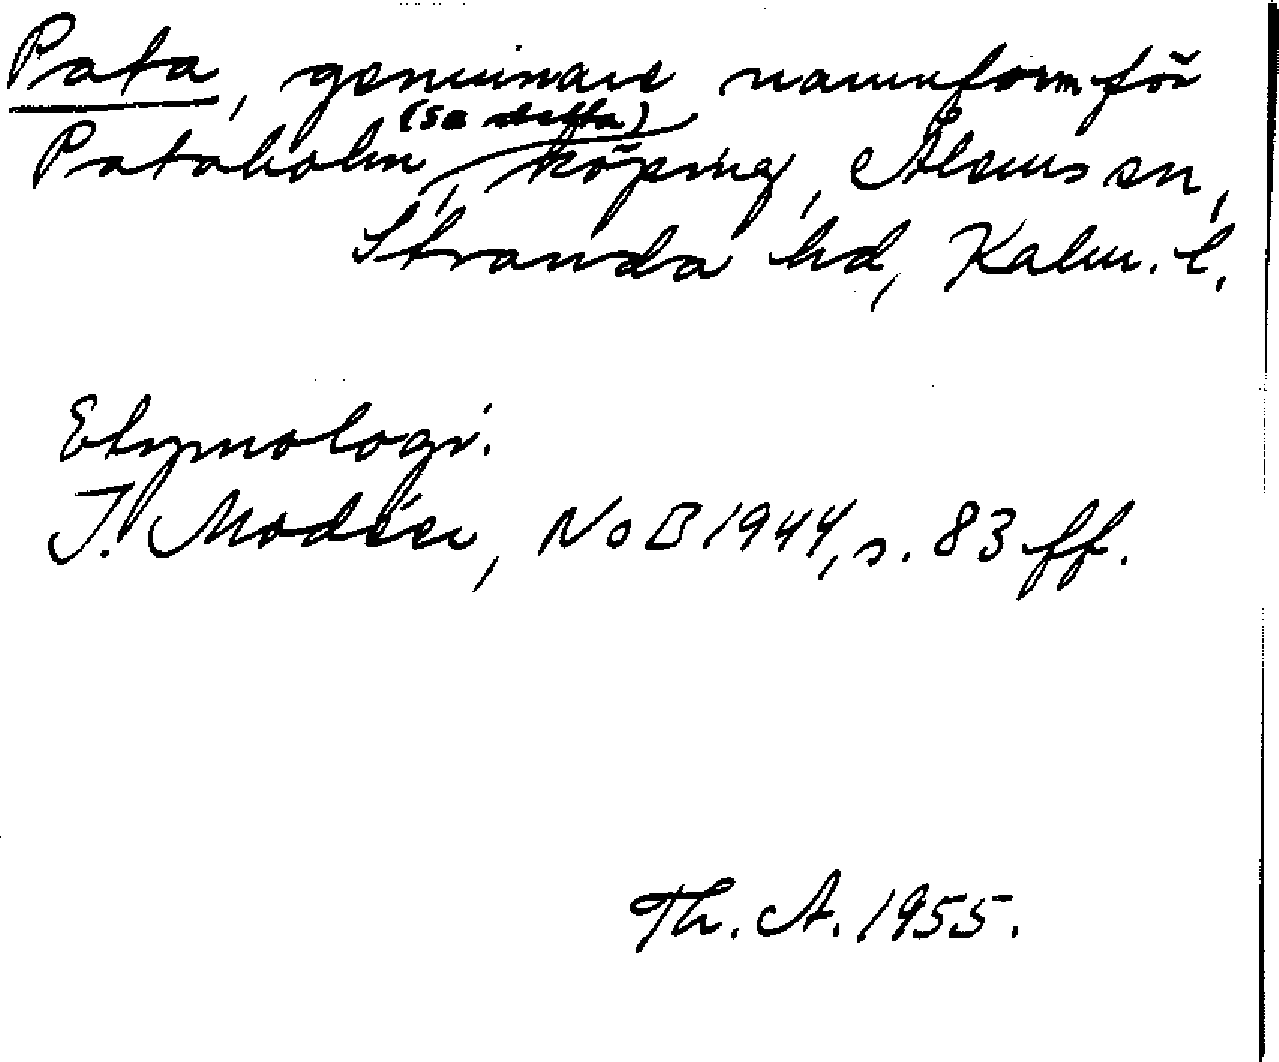 Pata, genuinare namnform för
(se detta)
Pataholm, köping, Ålems sn,
Stranda hd, Kalm. l.
Etymologi.
I. Modéer, NoB 1944, s. 83 ff.
Th. A. 1955.